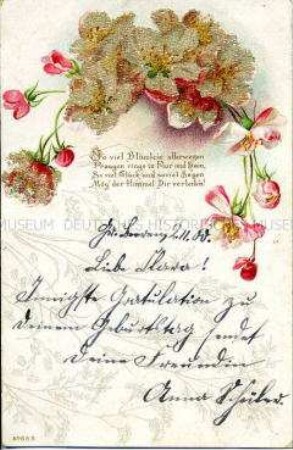 So viel Blümlein allerwegen
Prangen rings in Flur und Hain,
So viel Glück und soviel Segen
Mög' der Himmel Dir verleihn!
DEUTSCHES HISTORISCHES MUSEUM
2.11.00.
Liebe Klara!
Innigste Gratulation zu
Deinem Geburtstag sendet
Deine Freundin
Anna Schüler.